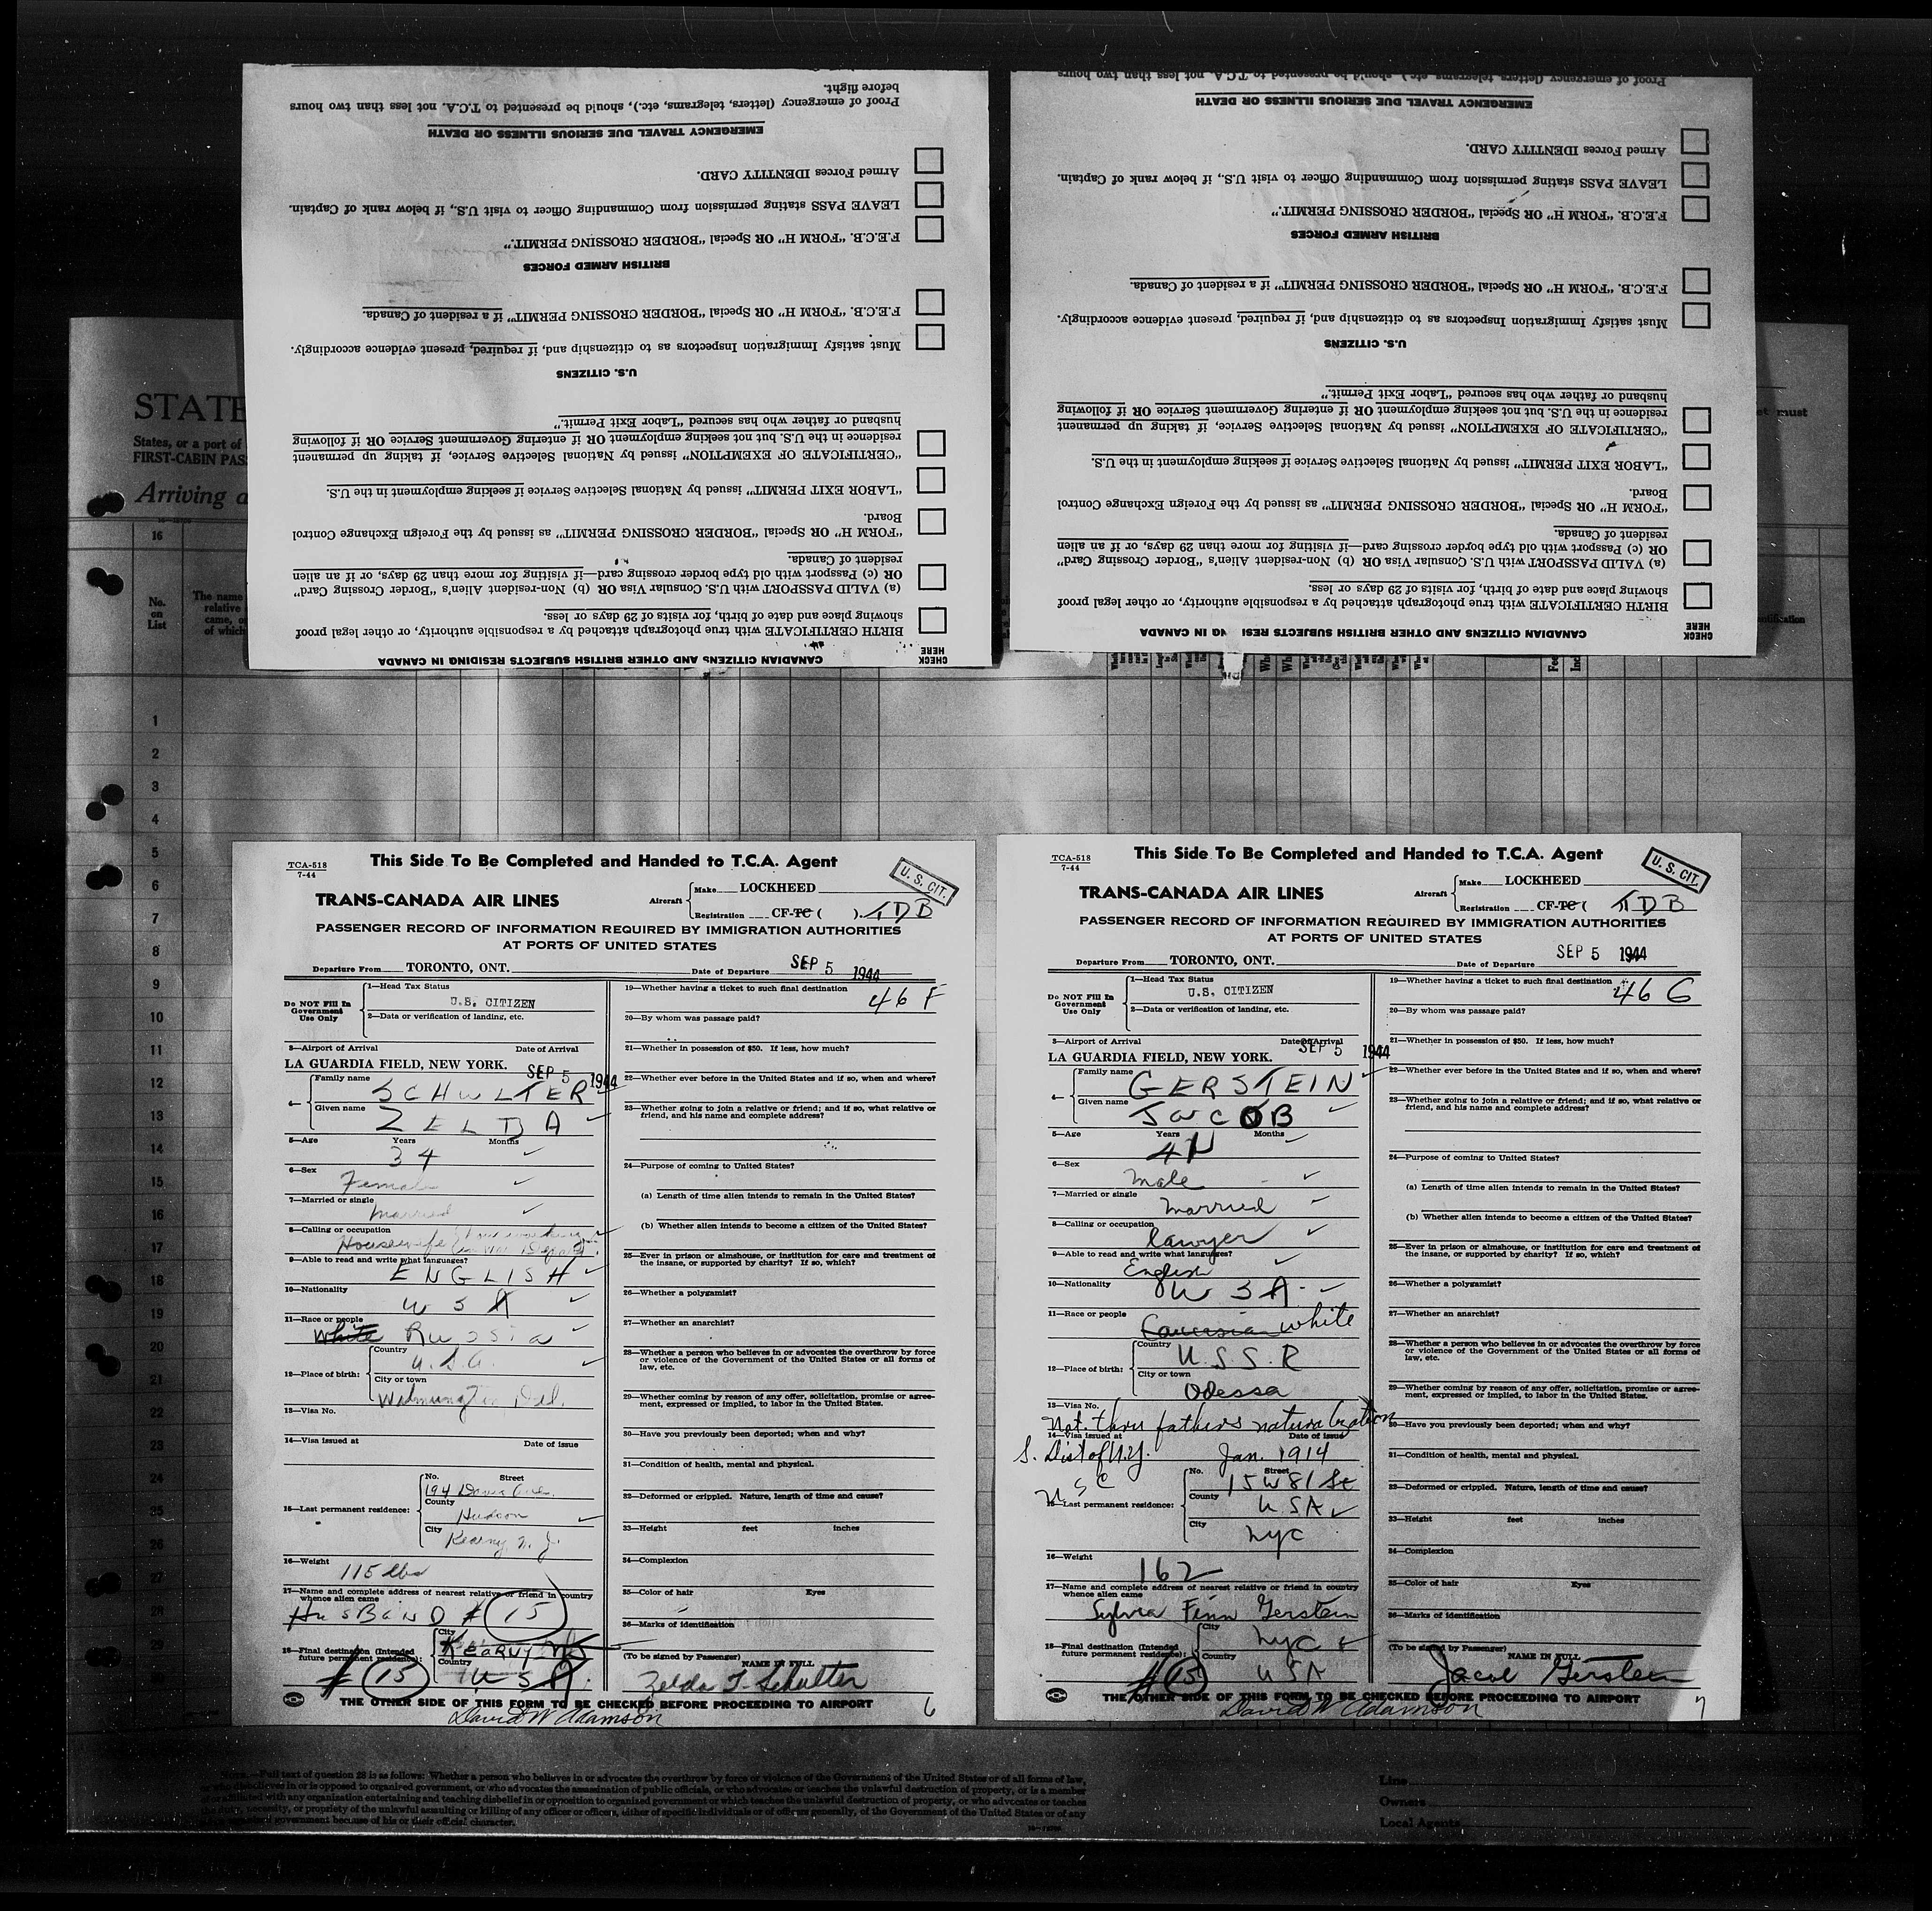 before flight.
Proof of emergency (letters, telegrams, etc.), should be presented to T.C.A. not less than two hours
EMERGENCY TRAVEL DUE SERIOUS ILLNESS OR DEATH
Armed Forces IDENTITY CARD.
LEAVE PASS stating permission from Commanding Officer to visit U.S., if below rank of Captain.
F.E.C.B. "FORM H" OR Special "BORDER CROSSING PERMIT."
BRITISH ARMED FORCES
F.E.C.B. "FORM H" OR Special "BORDER CROSSING PERMIT" if a resident of Canada.
Must satisfy Immigration Inspectors as to citizenship and, if required, present evidence accordingly.
U.S. CITIZENS
husband or father who has secured "Labor Exit Permit."
residence in the U.S. but not seeking employment OR if entering Government Service OR if following
"CERTIFICATE OF EXEMPTION" issued by National Selective Service, if taking up permanent
"LABOR EXIT PERMIT" issued by National Selective Service if seeking employment in the U.S.
Board.
"FORM H" OR Special "BORDER CROSSING PERMIT" as issued by the Foreign Exchange Control
resident of Canada.
OR (c) Passport with old type border crossing card—if visiting for more than 29 days, or if an alien
(a) VALID PASSPORT with U.S. Consular Visa OR (b) Non-resident Alien's "Border Crossing Card"
showing place and date of birth, for visits of 29 days or less.
BIRTH CERTIFICATE with true photograph attached by a responsible authority, or other legal proof
CHECK HERE
CANADIAN CITIZENS AND OTHER BRITISH SUBJECTS RESIDING IN CANADA
Proof of emergency (letters, telegrams, etc.) should be presented to T.C.A. not less than two hours
EMERGENCY TRAVEL DUE SERIOUS ILLNESS OR DEATH
Armed Forces IDENTITY CARD.
LEAVE PASS stating permission from Commanding Officer to visit U.S., if below rank of Captain.
F.E.C.B. "FORM H" OR Special "BORDER CROSSING PERMIT."
BRITISH ARMED FORCES
F.E.C.B. "FORM H" OR Special "BORDER CROSSING PERMIT" if a resident of Canada.
Must satisfy Immigration Inspectors as to citizenship and, if required, present evidence accordingly.
U.S. CITIZENS
husband or father who has secured "Labor Exit Permit."
residence in the U.S. but not seeking employment OR if entering Government Service OR if following
"CERTIFICATE OF EXEMPTION" issued by National Selective Service, if taking up permanent
"LABOR EXIT PERMIT" issued by National Selective Service if seeking employment in the U.S.
Board.
"FORM H" OR Special "BORDER CROSSING PERMIT" as issued by the Foreign Exchange Control
resident of Canada.
OR (c) Passport with old type border crossing card—if visiting for more than 29 days, or if an alien
(a) VALID PASSPORT with U.S. Consular Visa OR (b) Non-resident Alien's "Border Crossing Card"
showing place and date of birth, for visits of 29 days or less.
BIRTH CERTIFICATE with true photograph attached by a responsible authority, or other legal proof
CHECK HERE
CANADIAN CITIZENS AND OTHER BRITISH SUBJECTS RESI NG IN CANADA
STATE
States, or a port of
FIRST-CABIN PAS
Arriving a
16
No.
on
List
The name
relative
came, o
of which
1
2
3
4
5
6
7
8
9
10
11
12
13
14
15
16
17
18
19
20
21
22
23
24
25
26
27
28
29
TCA-518
7-44
This Side To Be Completed and Handed to T.C.A. Agent
U.S. CIT.
TRANS-CANADA AIR LINES
Aircraft
Make LOCKHEED
Registration CF-TC ( ). TDB
PASSENGER RECORD OF INFORMATION REQUIRED BY IMMIGRATION AUTHORITIES
AT PORTS OF UNITED STATES
Departure From TORONTO, ONT.
Date of Departure SEP 5 1944
Do NOT Fill In
Government
Use Only
1—Head Tax Status
U.S. CITIZEN
2—Data or verification of landing, etc.
3—Airport of Arrival Date of Arrival
LA GUARDIA FIELD, NEW YORK. SEP 5 1944
4— Family name SCHULTER
Given name ZELDA
5—Age Years Months
34
6—Sex
Female
7—Married or single
Married
8—Calling or occupation
Housewife
9—Able to read and write what languages?
ENGLISH
10—Nationality
USA
11—Race or people
White Russia
12—Place of birth: Country
U.S.A.
City or town
Wilmington Del.
13—Visa No.
14—Visa issued at Date of issue
15—Last permanent residence:
No. Street
194 Davis Ave.
County
Hudson
City
Kearny, N. J.
16—Weight
115 lbs
17—Name and complete address of nearest relative or friend in country
whence alien came
HUSBAND # 15
18—Final destination (Intended
future permanent residence):
City
KEARNY NJ
Country
# 15 USA.
19—Whether having a ticket to such final destination
46 F
20—By whom was passage paid?
21—Whether in possession of $50. If less, how much?
22—Whether ever before in the United States and if so, when and where?
23—Whether going to join a relative or friend; and if so, what relative or
friend, and his name and complete address?
24—Purpose of coming to United States?
(a) Length of time alien intends to remain in the United States?
(b) Whether alien intends to become a citizen of the United States?
25—Ever in prison or almshouse, or institution for care and treatment of
the insane, or supported by charity? If so, which?
26—Whether a polygamist?
27—Whether an anarchist?
28—Whether a person who believes in or advocates the overthrow by force
or violence of the Government of the United States or all forms of
law, etc.
29—Whether coming by reason of any offer, solicitation, promise or agree-
ment, expressed or implied, to labor in the United States.
30—Have you previously been deported; when and why?
31—Condition of health, mental and physical.
32—Deformed or crippled. Nature, length of time and cause?
33—Height feet inches
34—Complexion
35—Color of hair Eyes
36—Marks of identification
(To be signed by Passenger)
NAME IN FULL
Zelda T. Schulter
THE OTHER SIDE OF THIS FORM TO BE CHECKED BEFORE PROCEEDING TO AIRPORT
David W Adamson
6
TCA-518
7-44
This Side To Be Completed and Handed to T.C.A. Agent
U.S. CIT.
TRANS-CANADA AIR LINES
Aircraft
Make LOCKHEED
Registration CF-TC ( TDB
PASSENGER RECORD OF INFORMATION REQUIRED BY IMMIGRATION AUTHORITIES
AT PORTS OF UNITED STATES
Departure From TORONTO, ONT.
Date of Departure SEP 5 1944
Do NOT Fill In
Government
Use Only
1—Head Tax Status
U.S. CITIZEN
2—Data or verification of landing, etc.
3—Airport of Arrival Date of Arrival
LA GUARDIA FIELD, NEW YORK. SEP 5 1944
4— Family name GERSTEIN
Given name JACOB
5—Age Years Months
6—Sex
Male
7—Married or single
Married
8—Calling or occupation
lawyer
9—Able to read and write what languages?
English
10—Nationality
USA
11—Race or people
Caucasian white
12—Place of birth: Country
U.S.S.R
City or town
Odessa
13—Visa No.
Nat. thru fathers naturalization
14—Visa issued at Date of issue
S. Dist of N.Y. Jan. 1914
USC
15—Last permanent residence:
No. Street
15 W 81 St
County
USA
City
NYC
16—Weight
162
17—Name and complete address of nearest relative or friend in country
whence alien came
Sylvia Finn Gerstein
18—Final destination (Intended
future permanent residence):
City
NYC
Country
# 15 USA
19—Whether having a ticket to such final destination
46 G
20—By whom was passage paid?
21—Whether in possession of $50. If less, how much?
22—Whether ever before in the United States and if so, when and where?
23—Whether going to join a relative or friend; and if so, what relative or
friend, and his name and complete address?
24—Purpose of coming to United States?
(a) Length of time alien intends to remain in the United States?
(b) Whether alien intends to become a citizen of the United States?
25—Ever in prison or almshouse, or institution for care and treatment of
the insane, or supported by charity? If so, which?
26—Whether a polygamist?
27—Whether an anarchist?
28—Whether a person who believes in or advocates the overthrow by force
or violence of the Government of the United States or all forms of
law, etc.
29—Whether coming by reason of any offer, solicitation, promise or agree-
ment, expressed or implied, to labor in the United States.
30—Have you previously been deported; when and why?
31—Condition of health, mental and physical.
32—Deformed or crippled. Nature, length of time and cause?
33—Height feet inches
34—Complexion
35—Color of hair Eyes
36—Marks of identification
(To be signed by Passenger)
NAME IN FULL
Jacob Gerstein
THE OTHER SIDE OF THIS FORM TO BE CHECKED BEFORE PROCEEDING TO AIRPORT
David W Adamson
7
NOTE.—Full text of question 28 is as follows: Whether a person who believes in or advocates the overthrow by force or violence of the Government of the United States or of all forms of law,
or who disbelieves in or is opposed to organized government, or who advocates the assassination of public officials, or who advocates or teaches the unlawful destruction of property, or is a member
of or affiliated with any organization entertaining and teaching disbelief in or opposition to organized government or which teaches the unlawful destruction of property, or who advocates or teaches
the duty, necessity, or propriety of the unlawful assaulting or killing of any officer or officers, either of specific individuals or of officers generally, of the Government of the United States or of any
organized government because of his or their official character.
Line
Owners
Local Agents